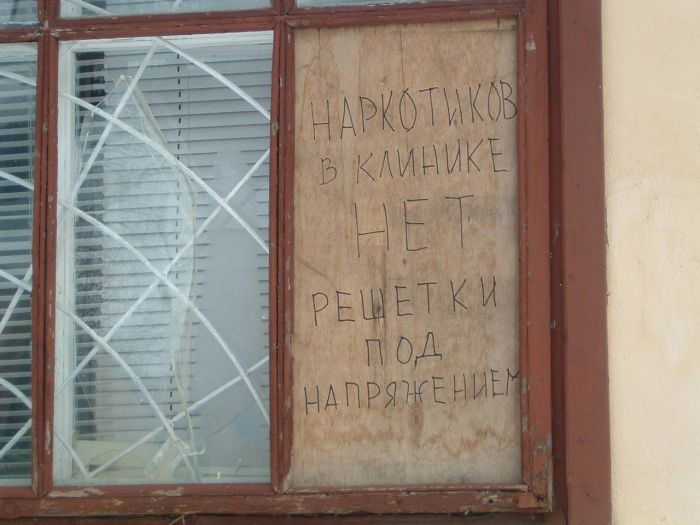 НАРКОТИКОВ
В КЛИНИКЕ
НЕТ
РЕШЕТКИ
ПОД
НАПРЯЖЕНИЕМ